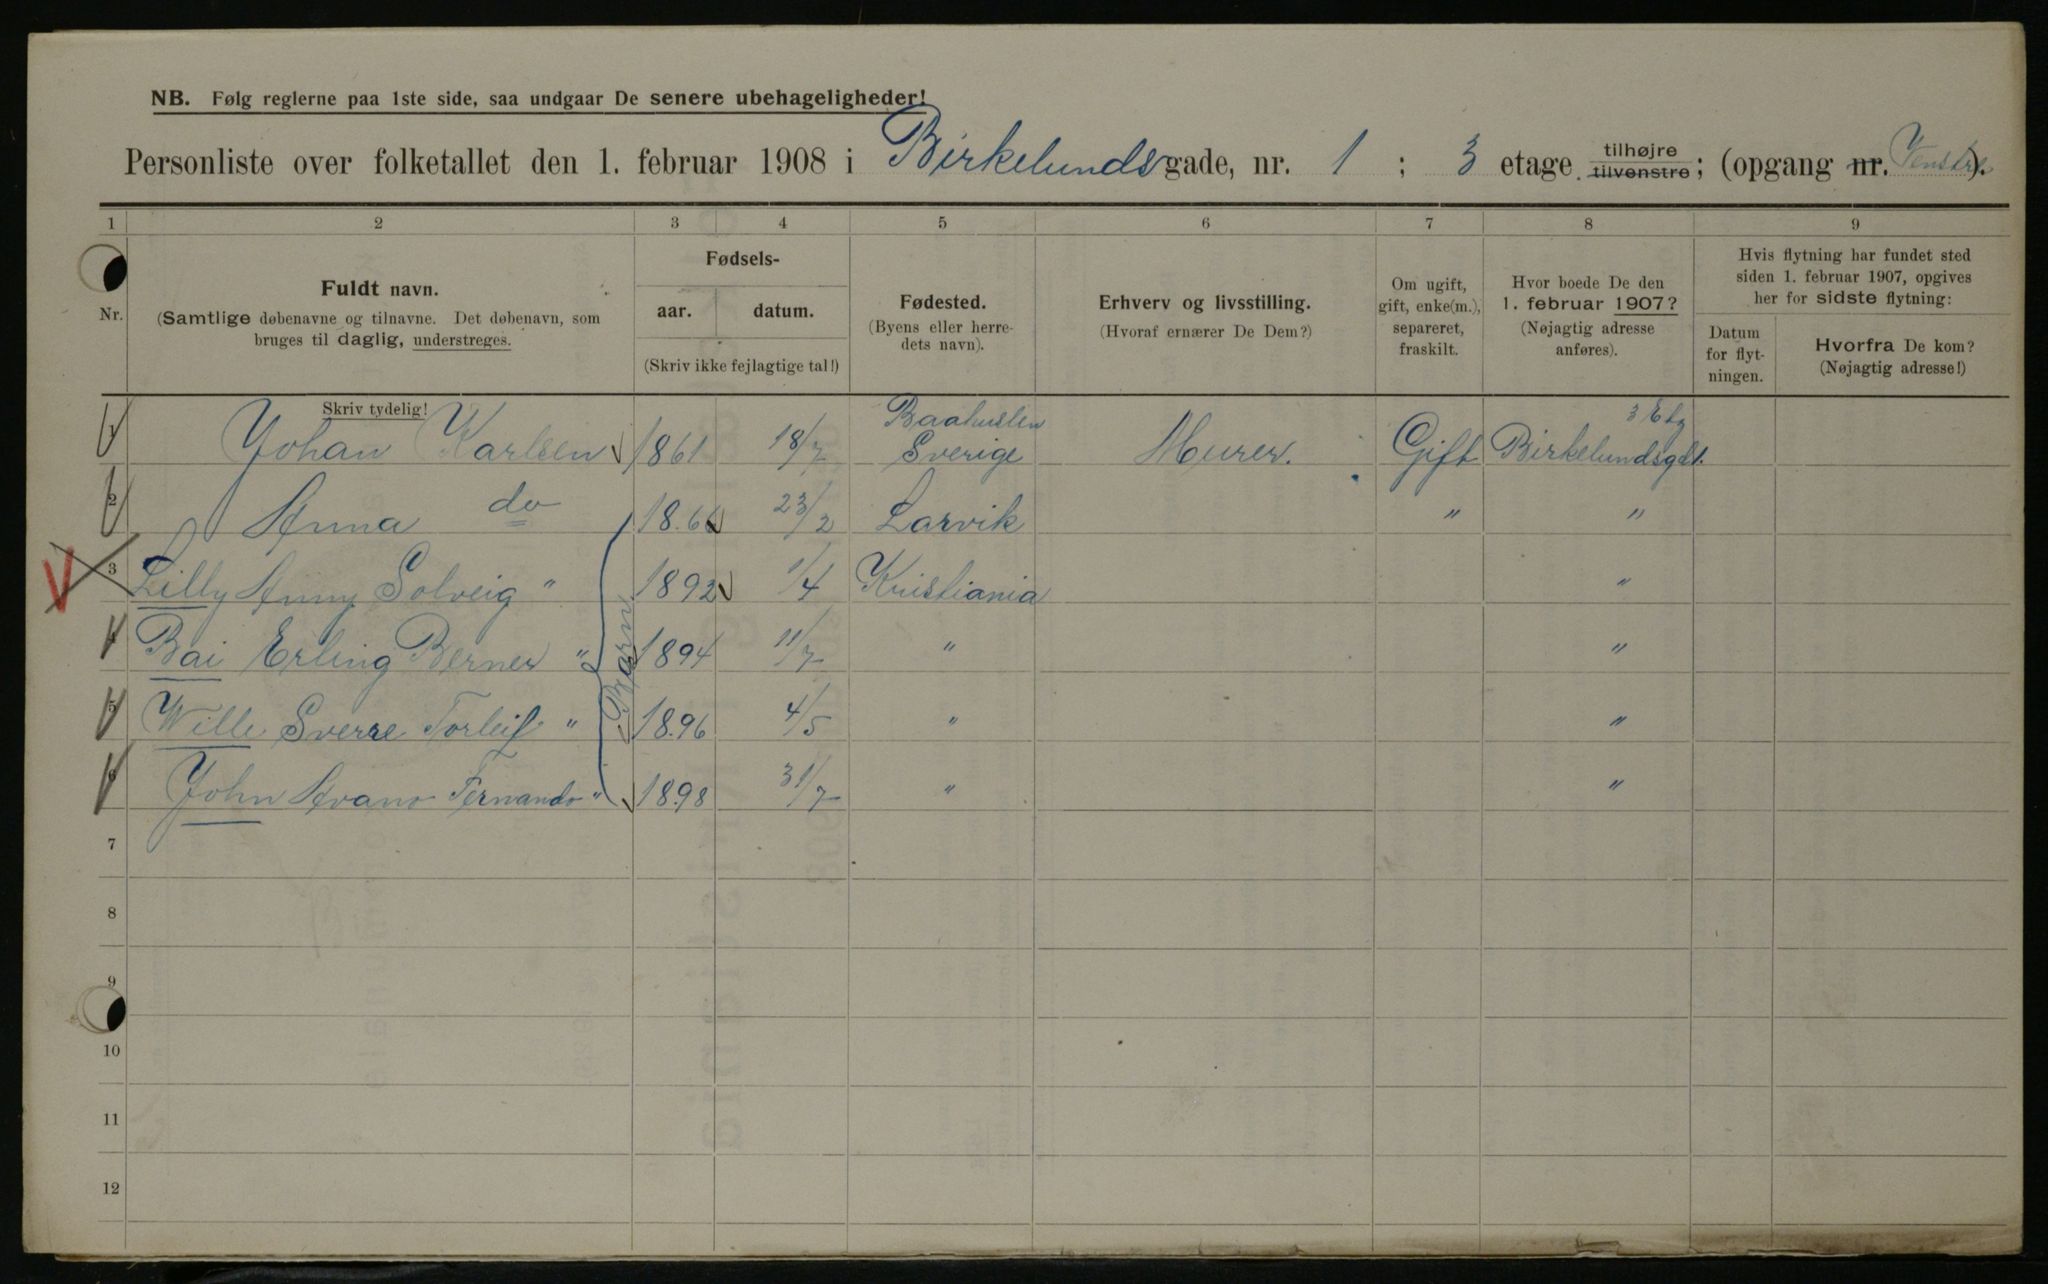 NB. Følg reglerne paa 1ste side, saa undgaar De senere ubehageligheder!
Personliste over folketallet den 1. februar 1908 i Birkelundsgade, nr. 1 ; 3 etage tilhøjre tilvenstre; (opgang nr. Venstre).
1 2 3 4 5 6 7 8 9
Nr.
Fuldt navn.
(Samtlige døbenavne og tilnavne. Det døbenavn, som
bruges til daglig, understreges.
Fødsels-
aar. datum.
(Skriv ikke fejlagtige tal!)
Fødested.
(Byens eller herre-
dets navn).
Erhverv og livsstilling.
(Hvoraf ernærer De Dem?)
Om ugift,
gift, enke(m.),
separeret,
fraskilt.
Hvor boede De den
1. februar 1907?
(Nøjagtig adresse
anføres).
Hvis flytning har fundet sted
siden 1. februar 1907, opgives
her for sidste flytning:
Datum
for flyt-
ningen.
Hvorfra De kom?
(Nøjagtig adresse!)
Skriv tydelig!
1 Johan Karlsen 1861 18/7 Baahuslen Sverige Murer. Gift Birkelundsgd 1. 3 Etg
2 Anna do 1866 23/2 Larvik " "
3 Lilly Anny Solveig " 1892 1/4 Kristiania "
4 Bai Erling Berner " 1894 11/7 " "
5 Wille Sverre Torleif " 1896 4/5 " "
6 John Fernando " 1898 31/7 " "
Barn
7
8
9
10
11
12